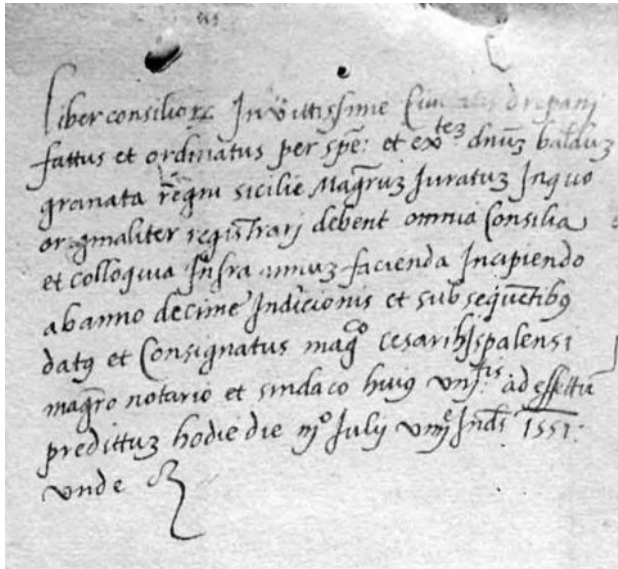 liber consiliorum Invittissime Civitatis drepani
fattus et ordinatus per spe: et extem dnum baldum
granata regni sicilie Magrum Juratum In quo
originaliter registrarj debent omnia Consilia
et colloquia Infra annum facienda Incipiendo
ab anno decime Indicionis et subsequetibus
datus et Consignatus magco cesari hispalensi
magro notario et sindaco huius unitis ad effettum
predittum hodie die iijo Julij viiije Inds 1551:
unde